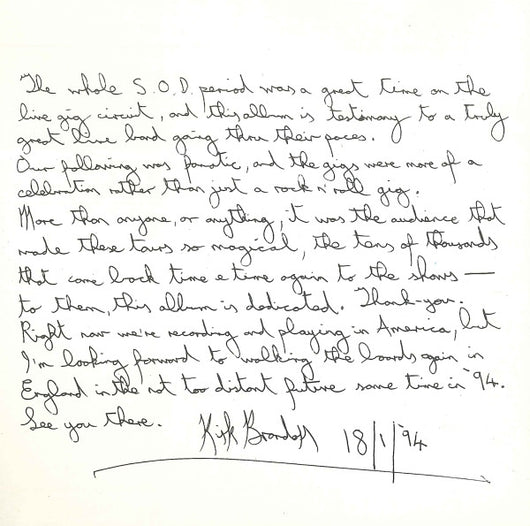 The whole S.O.D. period was a great time on the
live gig circuit, and this album is testimony to a truly
great live band going thru their paces.
Our following was fanatic, and the gigs were more of a
celebration rather than just a rock n' roll gig.
More than anyone, or anything, it was the audience that
made these tours so magical, the tens of thousands
that came back time & time again to the shows —
to them, this album is dedicated. Thank-you.
Right now we're recording and playing in America, but
I'm looking forward to walking the boards again in
England in the not too distant future some time in '94.
See you there.
Kirk Brandon 18/1/'94